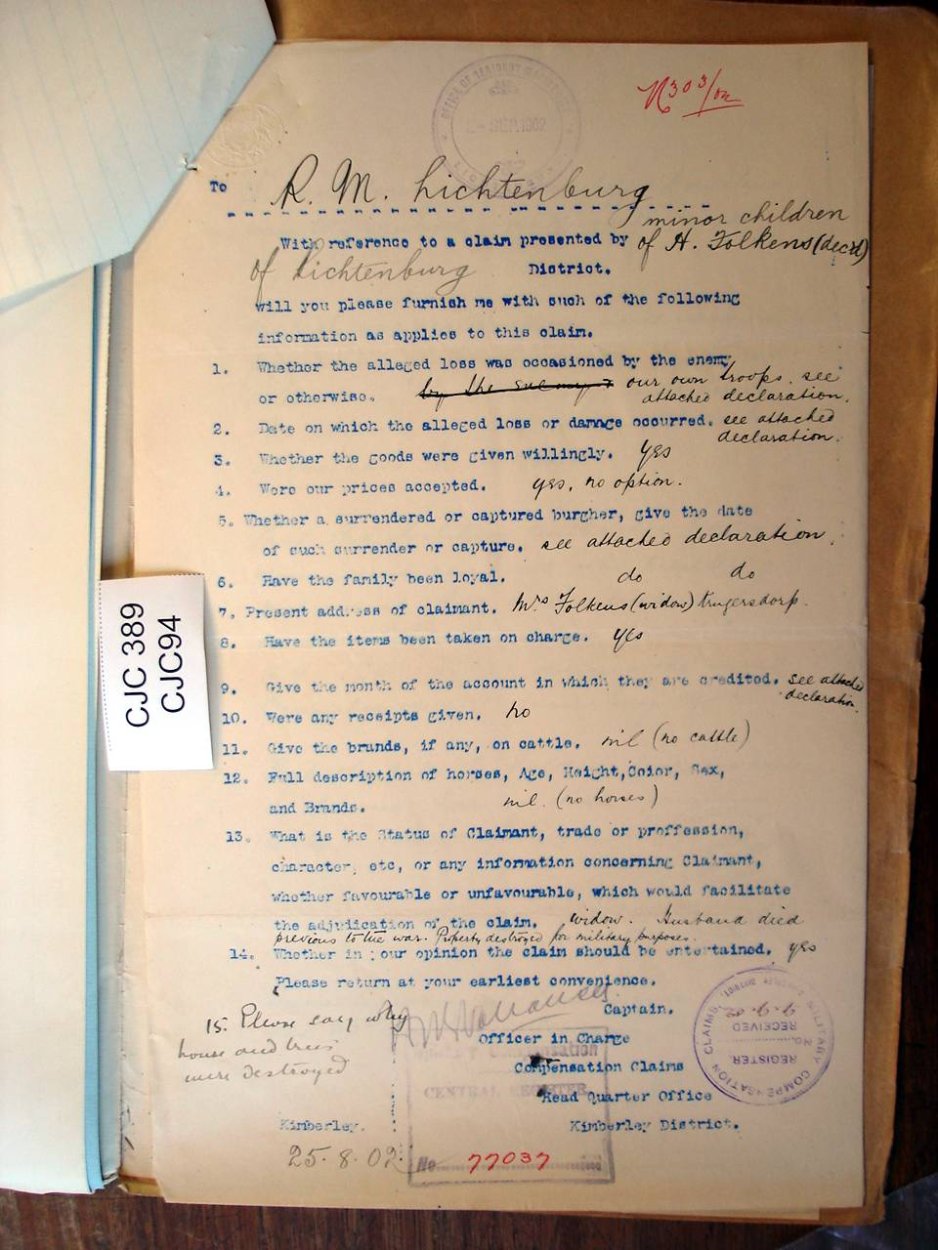 N303/02
SEP 1902
To R. M. Lichtenburg
minor children
With reference to a claim presented by of H. Folkens (decd)
of Lichtenburg District.
will you please furnish me with such of the following
information as applies to this claim.
1. Whether the alleged loss was occasioned by the enemy
or otherwise. by the enemy our own troops. see
attached declaration.
2. Date on which the alleged loss or damage occurred. see attached
declaration.
3. Whether the goods were given willingly. Yes
4. Were our prices accepted. yes, no option.
5. Whether a surrendered or captured burgher, give the date
of such surrender or capture. see attached declaration.
6. Have the family been loyal. do do
7. Present address of claimant. Mrs Folkens (widow) Krugersdorp.
8. Have the items been taken on charge. yes
9. Give the month of the account in which they are credited. see attached
declaration.
10. Were any receipts given. No
11. Give the brands, if any, on cattle. nil (no cattle)
12. Full description of horses, Age, Height, Color, Sex,
and Brands. nil. (no horses)
13. What is the Status of Claimant, trade or proffession,
character, etc, or any information concerning Claimant,
whether favourable or unfavourable, which would facilitate
the adjudication of the claim. widow. Husband died
previous to the war. Property destroyed for military purposes.
14. Whether in your opinion the claim should be entertained. yes
Please return at your earliest convenience.
Captain.
15. Please say why
house and trees
were destroyed
Officer in Charge
Compensation Claims
CENTRAL REGISTER
Head Quarter Office
Kimberley. Kimberley District.
25.8.02.
No. 77037
MILITARY COMPENSATION CLAIMS
REGISTER.
No.
RECEIVED
9-9-02
CJC 389
CJC94